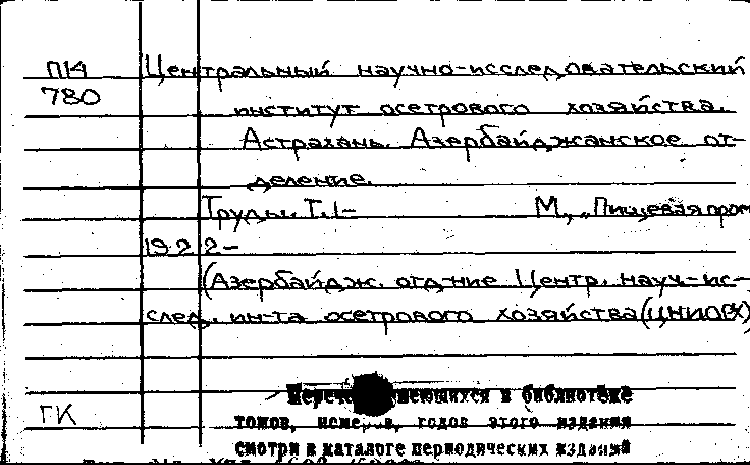 П14 Центральный научно-исследовательский
780 институт осетрового хозяйства.
Астрахань. Азербайджанское от-
деление.
Труды. Т. 1- М., "Пищевая пром
19
(Азербайдж. отд-ние Центр. науч-ис-
след. ин-та осетрового хозяйства (ЦНИОРХ)
имеющихся в библиотеке
томов, номеров, годов этого издания
смотри в каталоге периодических изданий
ГК